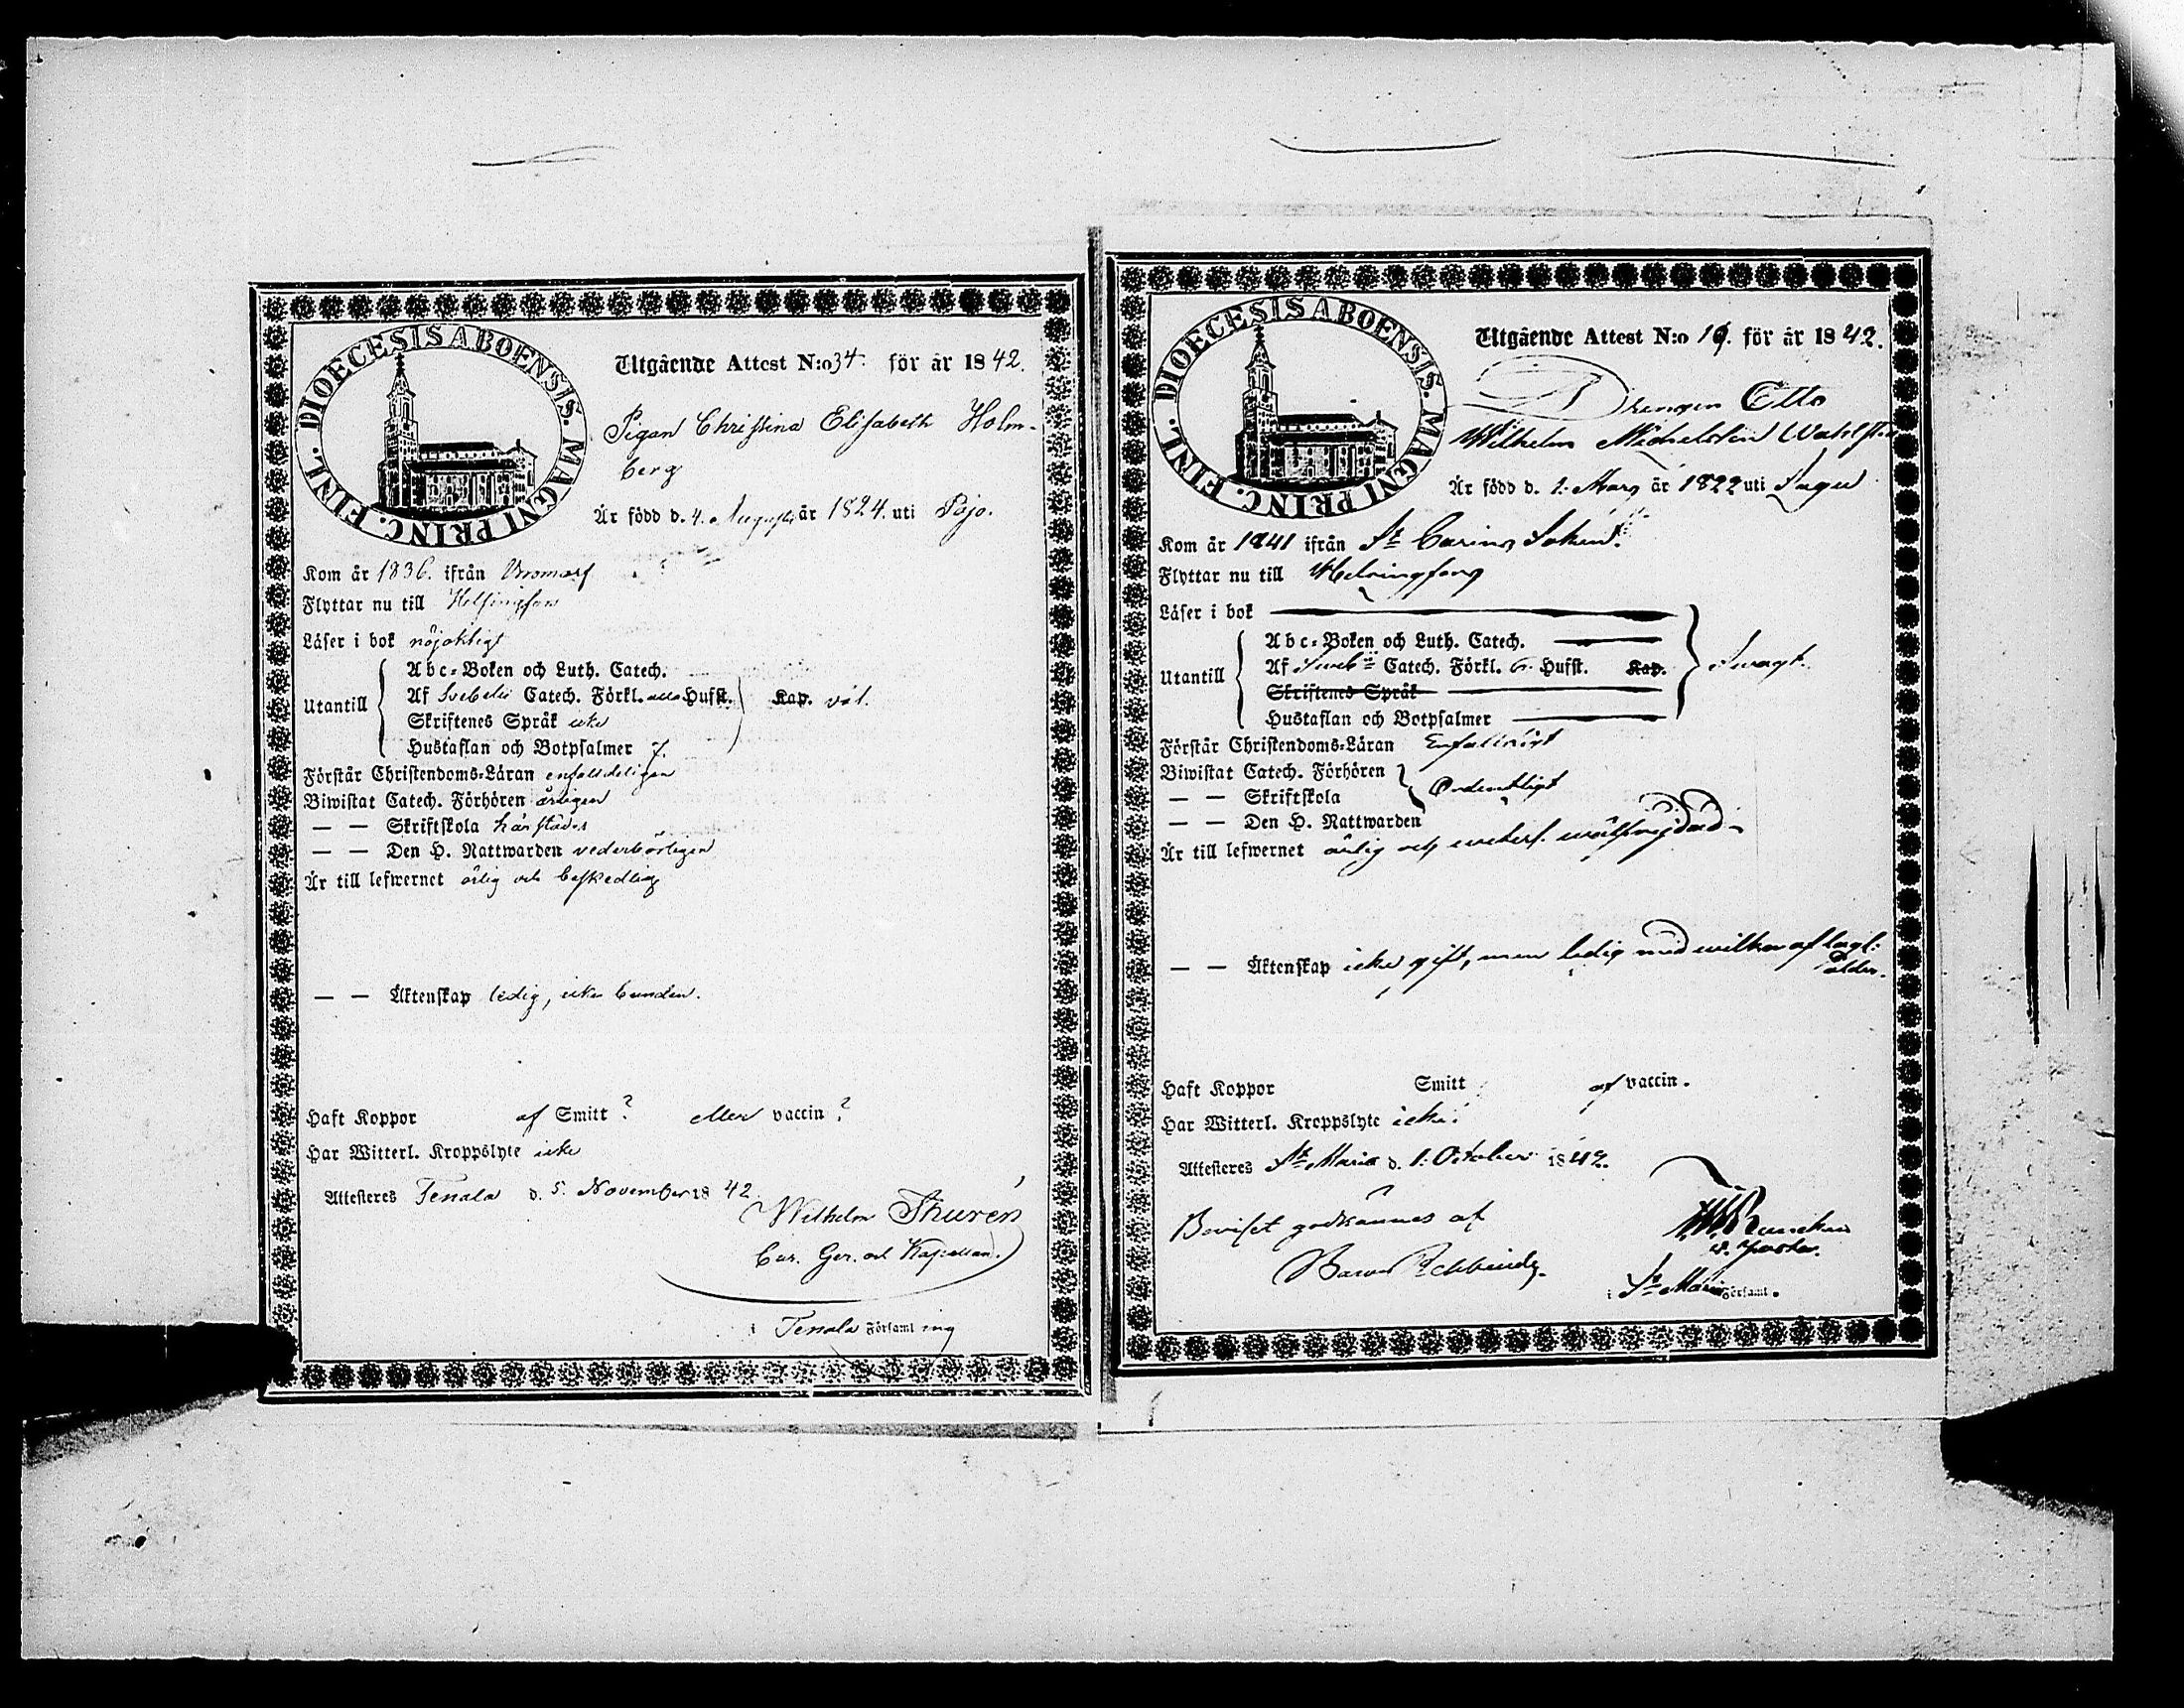 DIOECESIS ABOENSIS. MAGNI PRINC. FINL.
Utgående Attest N:o 34. för år 1842.
Pigan Christina Elisabeth Holm-
berg
Är född d. 4. Augusti år 1824. uti Pojo.
Kom år 1836. ifrån Bromarf
Flyttar nu till Helsingfors
Läser i bok nöjaktigt
Utantill
Abc-Boken och Luth. Catech.
Af Svebelii Catech. Förkl. alla Hufst. Kap. väl.
Skriftenes Språk icke
Hustaflan och Botpsalmer 7.
Förstår Christendoms-Läran enfalldeligen
Biwistat Catech. Förhören årligen
— — Skriftskola härstädes
— — Den H. Nattwarden vederbörligen
Är till lefwernet ärlig och beskedlig
— — Äktenskap ledig, icke bunden.
Haft Koppor af Smitt? eller vaccin?
Har Witterl. Kroppslyte icke
Attesteres Tenala d. 5. November 1842
Wilhelm Thurén
Cur. Ger. och Kapellan.
i Tenala Församling
DIOECESIS ABOENSIS. MAGNI PRINC. FINL.
Utgående Attest N:o 19. för år 1842.
Drengen Otto
Wilhelm Michelsson Wahlsten
Är född d. 1. Mars år 1822 uti
Kom år 1841 ifrån St Carins Sokn.
Flyttar nu till Helsingfors
Läser i bok
Utantill
Abc-Boken och Luth. Catech.
Af Sveb: Catech. Förkl. 6. Hufst. Kap. Swagt.
Skriftenes Språk
Hustaflan och Botpsalmer
Förstår Christendoms-Läran Enfalldigt
Biwistat Catech. Förhören
— — Skriftskola Ordentligt
— — Den H. Nattwarden
Är till lefwernet ärlig och wälfrejdad
— — Äktenskap icke gift, men ledig med wilkor af lagl:
ålder.
Haft Koppor Smitt af vaccin.
Har Witterl. Kroppslyte icke.
Attesteres St Marie d. 1. October 1842.
Beviset godkännes af
v. Pastor.
i St Marie Församl.